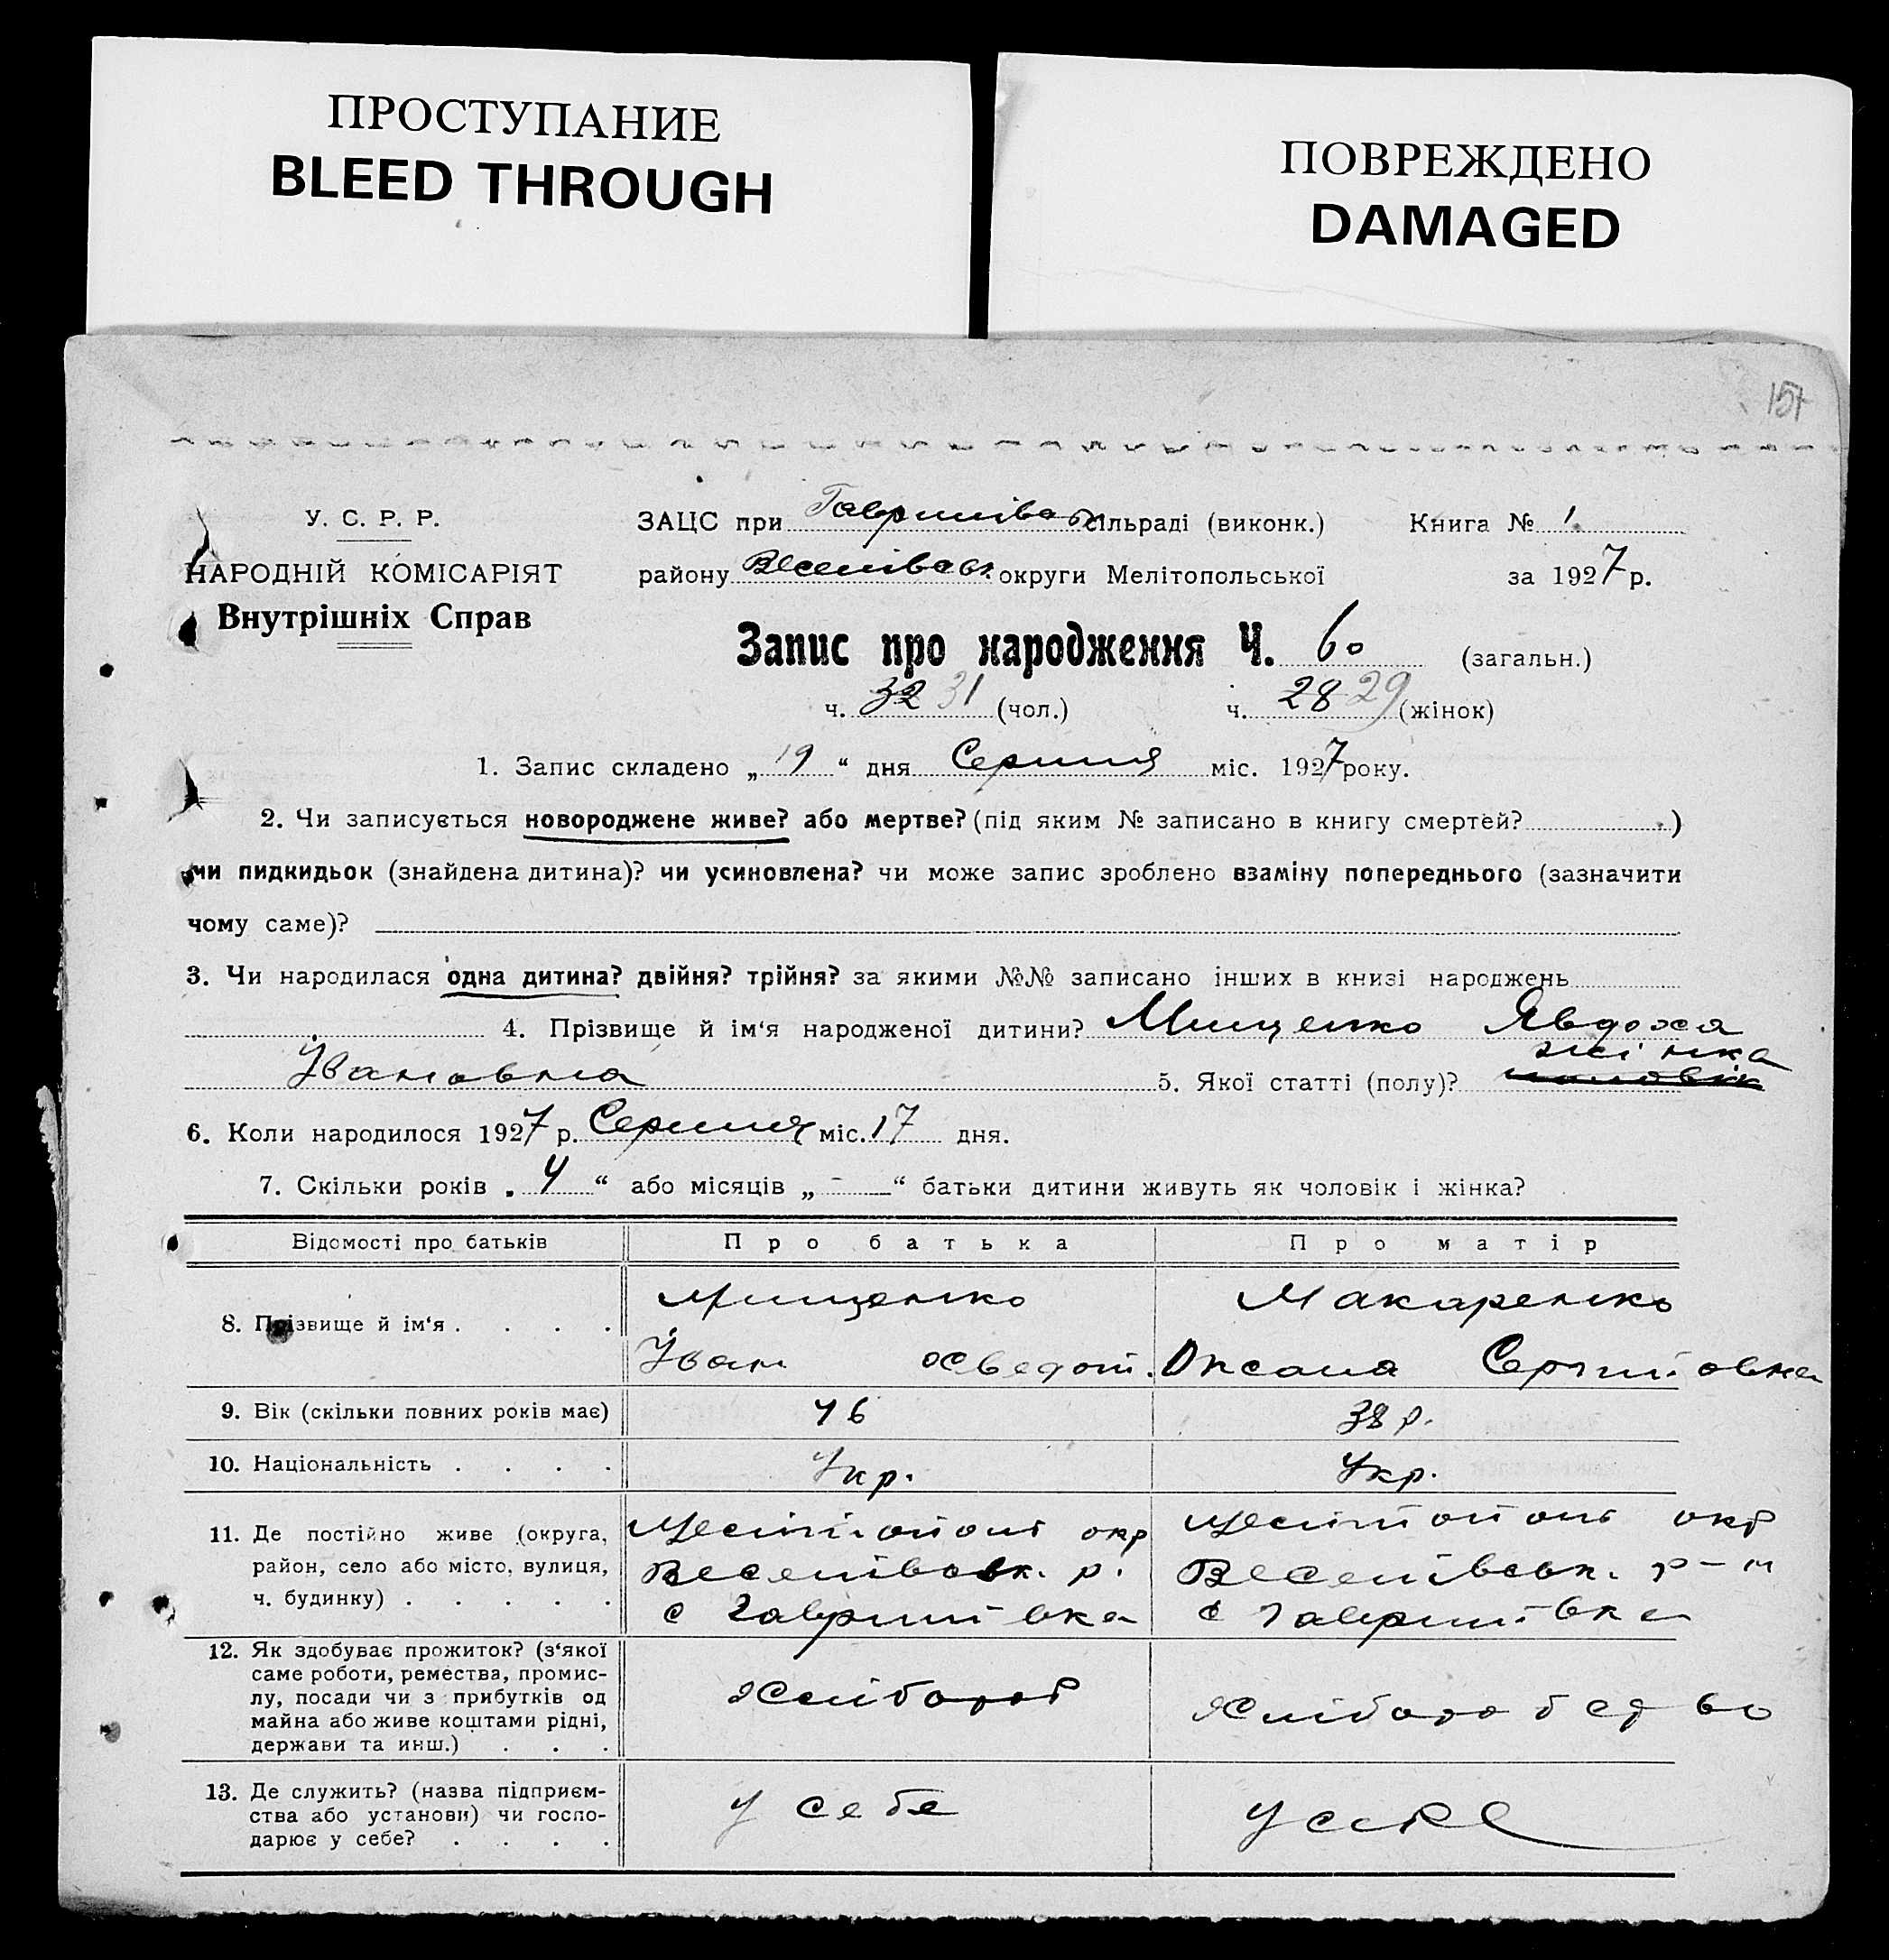 ПРОСТУПАНИЕ
BLEED THROUGH
ПОВРЕЖДЕНО
DAMAGED
157
У. С. Р. Р.
НАРОДНІЙ КОМІСАРІЯТ
Внутрішніх Справ
ЗАЦС при Гаврилівськ сільраді (виконк.) Книга № 1
району Веселівськ. округи Мелітопольської за 1927 р.
Запис про народження Ч. 60 (загальн.)
ч. 32 31 (чол.) ч. 28 29 (жінок)
1. Запис складено „ 19 “ дня Серпня міс. 1927 року.
2. Чи записується новороджене живе? або мертве? (під яким № записано в книгу смертей? )
чи пидкидьок (знайдена дитина)? чи усиновлена? чи може запис зроблено взаміну попереднього (зазначити
чому саме)?
3. Чи народилася одна дитина? двійня? трійня? за якими №№ записано інших в книзі народжень
4. Прізвище й ім‘я народженої дитини? Мищенко Явдоха
Івановна 5. Якої статті (полу)? жінка чоловік
6. Коли народилося 1927 р. Серпня міс. 17 дня.
7. Скільки років „ 4 “ або місяців „ - “ батьки дитини живуть як чоловік і жінка?
Відомості про батьків Про батька Про матір
8. Прізвище й ім‘я . . . . Мищенко Макаренко
Іван Хведот. Оксана Сергийовна
9. Вік (скільки повних років має) 46 38 р.
10. Національність . . . . Укр. Укр.
11. Де постійно живе (округа, Мелітопол окр Мелітопол окр
район, село або місто, вулиця, Веселівськ. р. Веселівськ. р-н
ч. будинку) . . . . . с Гаврилівка с Гаврилівка
12. Як здобуває прожиток? (з‘якої
саме роботи, ремества, промис-
лу, посади чи з прибутків од Хлібороб Хліборобство
майна або живе коштами рідні,
держави та инш.) . . .
13. Де служить? (назва підприєм-
ства або установи) чи госпо- у себе у себе
дарює у себе? . . . .